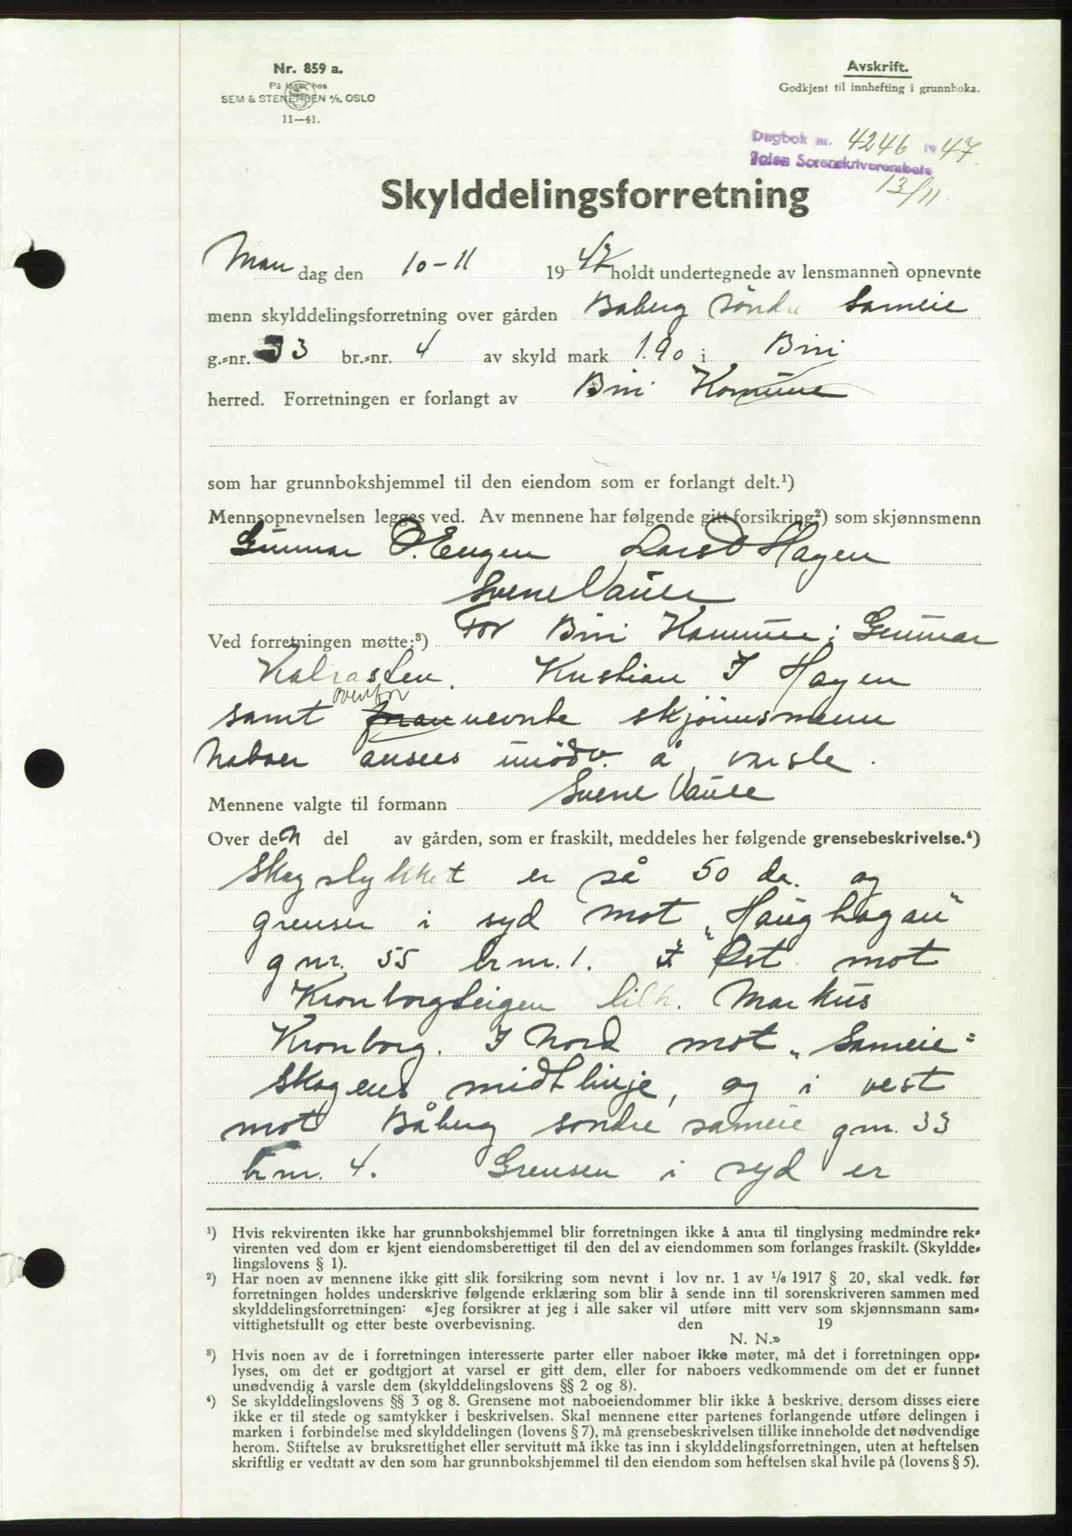 Nr. 859 a.
På lager hos
SEM & STENERSEN A/S, OSLO
11—41.
Avskrift.
Godkjent til innhefting i grunnboka.
Dagbok nr. 4246 19 47
Toten Sorenskriverembete
13/11
Skylddelingsforretning
Man dag den 10-11 19 47 holdt undertegnede av lensmannen opnevnte
menn skylddelingsforretning over gården Baberg söndre Sameie
g.-nr. 33 br.-nr. 4 av skyld mark 1.90 i Biri
herred. Forretningen er forlangt av Biri Komune
som har grunnbokshjemmel til den eiendom som er forlangt delt.¹)
Mennsopnevnelsen legges ved. Av mennene har følgende gitt forsikring²) som skjønnsmenn
Gunnar O. Engen Lars Hagen
Svene
Ved forretningen møtte:³) For Biri Kommune: Gunnar
Kalrasten. Kristian I Hagen
ovenfor
samt foran nevnte skjönnsmenn
Naboer ansees unödv. å varsle.
Mennene valgte til formann Svene
Over den del av gården, som er fraskilt, meddeles her følgende grensebeskrivelse.⁴)
Skogstykket er så 50 da. og
grenser i syd mot „Haughagan"
gnr. 55 brnr. 1. I Öst mot
Kronborgteigen tilh. Markus
Kronborg. I Nord mot „Sameie=
skogens midtlinje, og i vest
mot Båberg söndre sameie gnr. 33
brnr. 4. Grensen i syd er
¹) Hvis rekvirenten ikke har grunnbokshjemmel blir forretningen ikke å anta til tinglysing medmindre rek-
virenten ved dom er kjent eiendomsberettiget til den del av eiendommen som forlanges fraskilt. (Skyldde-
lingslovens § 1).
²) Har noen av mennene ikke gitt slik forsikring som nevnt i lov nr. 1 av 1/6 1917 § 20, skal vedk. før
forretningen holdes underskrive følgende erklæring som blir å sende inn til sorenskriveren sammen med
skylddelingsforretningen: «Jeg forsikrer at jeg i alle saker vil utføre mitt verv som skjønnsmann sam-
vittighetsfullt og etter beste overbevisning. den 19
N. N.»
³) Hvis noen av de i forretningen interesserte parter eller naboer ikke møter, må det i forretningen opp-
lyses, om det er godtgjort at varsel er gitt dem, eller for naboers vedkommende om det er funnet
unødvendig å varsle dem (skylddelingslovens §§ 2 og 8).
⁴) Se skylddelingslovens §§ 3 og 8. Grensene mot naboeiendommer blir ikke å beskrive, dersom disses eiere
ikke er til stede og samtykker i beskrivelsen. Skal mennene etter partenes forlangende utføre delingen i
marken i forbindelse med skylddelingen (lovens § 7), må grensebeskrivelsen tillike inneholde det nødvendige
herom. Stiftelse av bruksrettighet eller servitutt må ikke tas inn i skylddelingsforretningen, uten at heftelsen
skriftlig er vedtatt av den som har grunnbokshjemmel til den eiendom som heftelsen skal hvile på (lovens § 5).